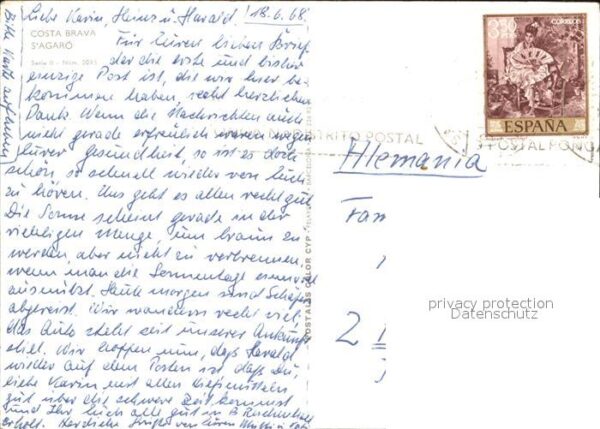 Liebe Karin, Heinz u. Harald! 18.6.68
COSTA BRAVA
S'AGARÓ
Serie II - Núm. 2095
Bitte Karte aufheben
Für Euren lieben Brief
der die erste und bisher
einzige Post ist, die wir hier be-
kommen haben, recht herzlichen
Dank. Wenn die Nachrichten auch
nicht gerade erfreulich waren wegen
Eurer Gesundheit, so ist es doch
schön, so schnell wieder von Euch
zu hören. Uns geht es allen recht gut
Die Sonne scheint gerade in der
richtigen Menge, um braun zu
werden, aber nicht zu verbrennen,
wenn man die Sonnentage
ausnützt. Heute morgen sind
abgereist. Wir wandern recht viel,
das Auto steht seit unserer Ankunft
still. Wir hoffen nun, daß Harald
wieder auf dem Posten ist, daß Du,
liebe Karin mit allen
gut über die schwere Zeit kommst
und Ihr Euch alle gut in B. Reichenhall
erholt. Herzliche Grüße von Euren Mutti u. Vati
POSTALES COLOR CYP
3,50
PTAS
CORREOS
ESPAÑA
DISTRITO POSTAL
Alemania
Fam
2
privacy protection
Datenschutz